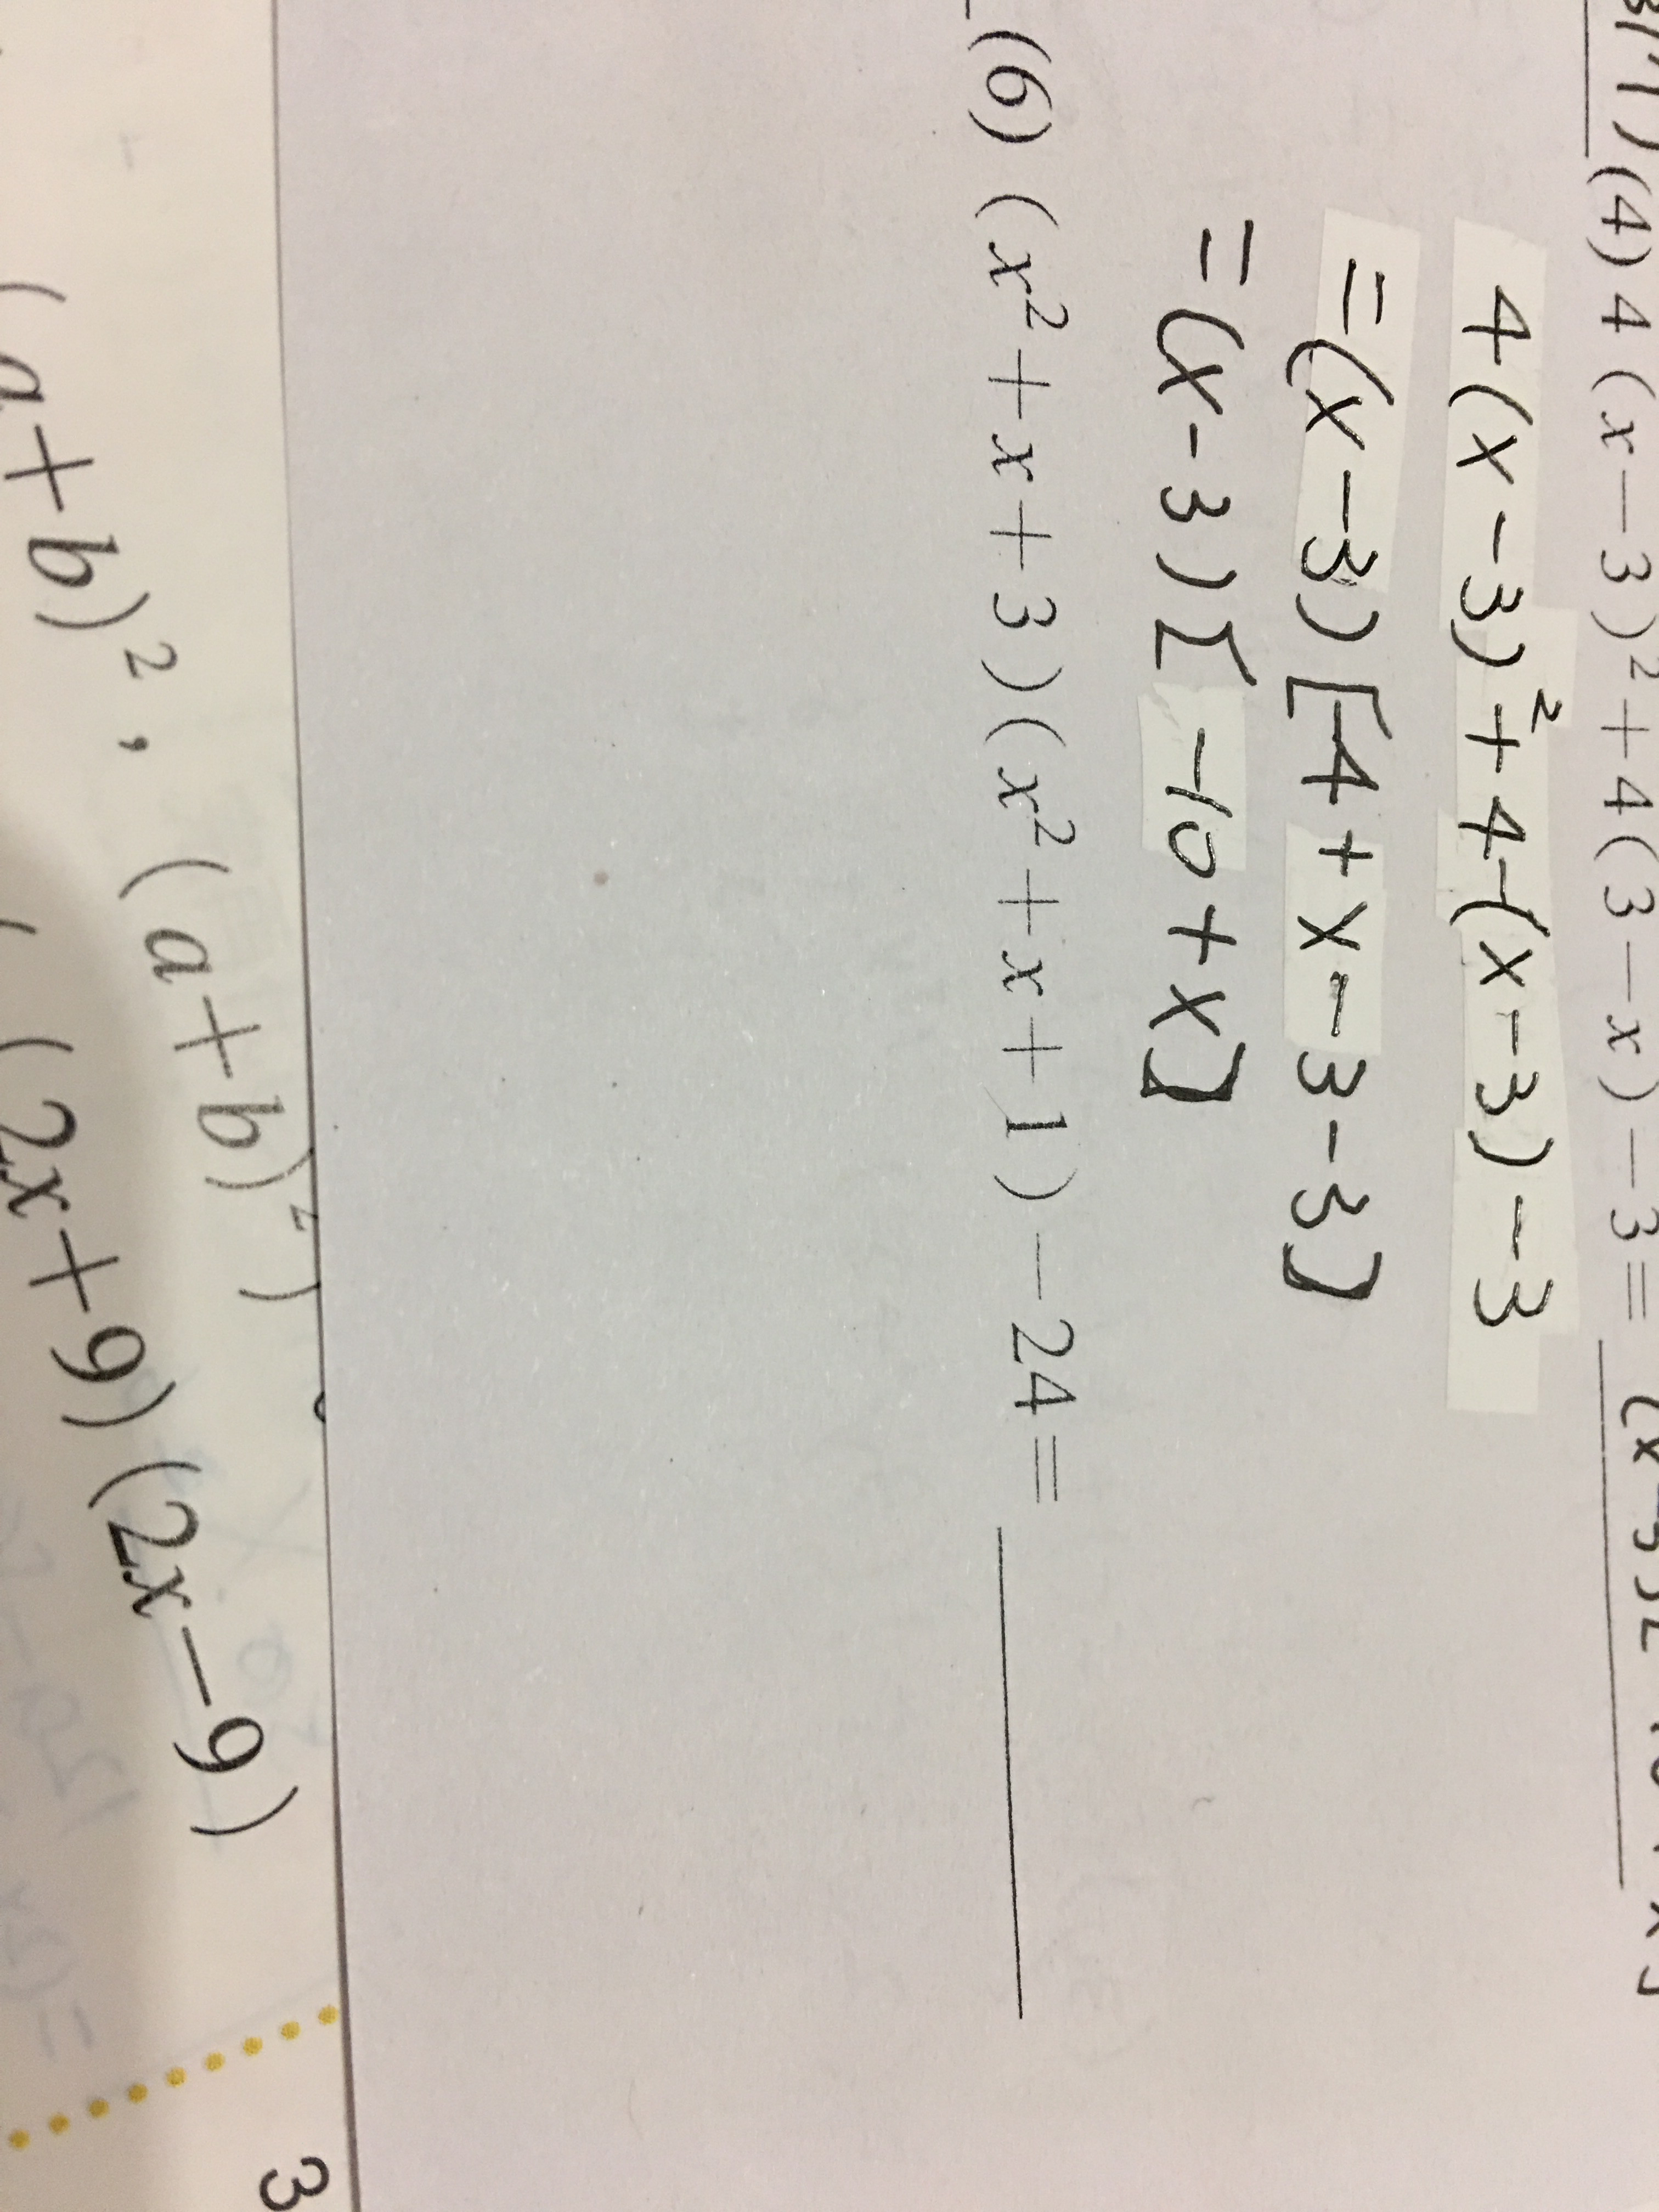 (4) 4(x-3)²+4(3-x)-3=
4(x-3)²+4-(x-3)-3
=(x-3)[-4+x-3-3]
=(x-3)[-10+x]
(6) (x²+x+3)(x²+x+1)-24=
(a+b)², (a+b)²)
(2x+9)(2x-9)
3